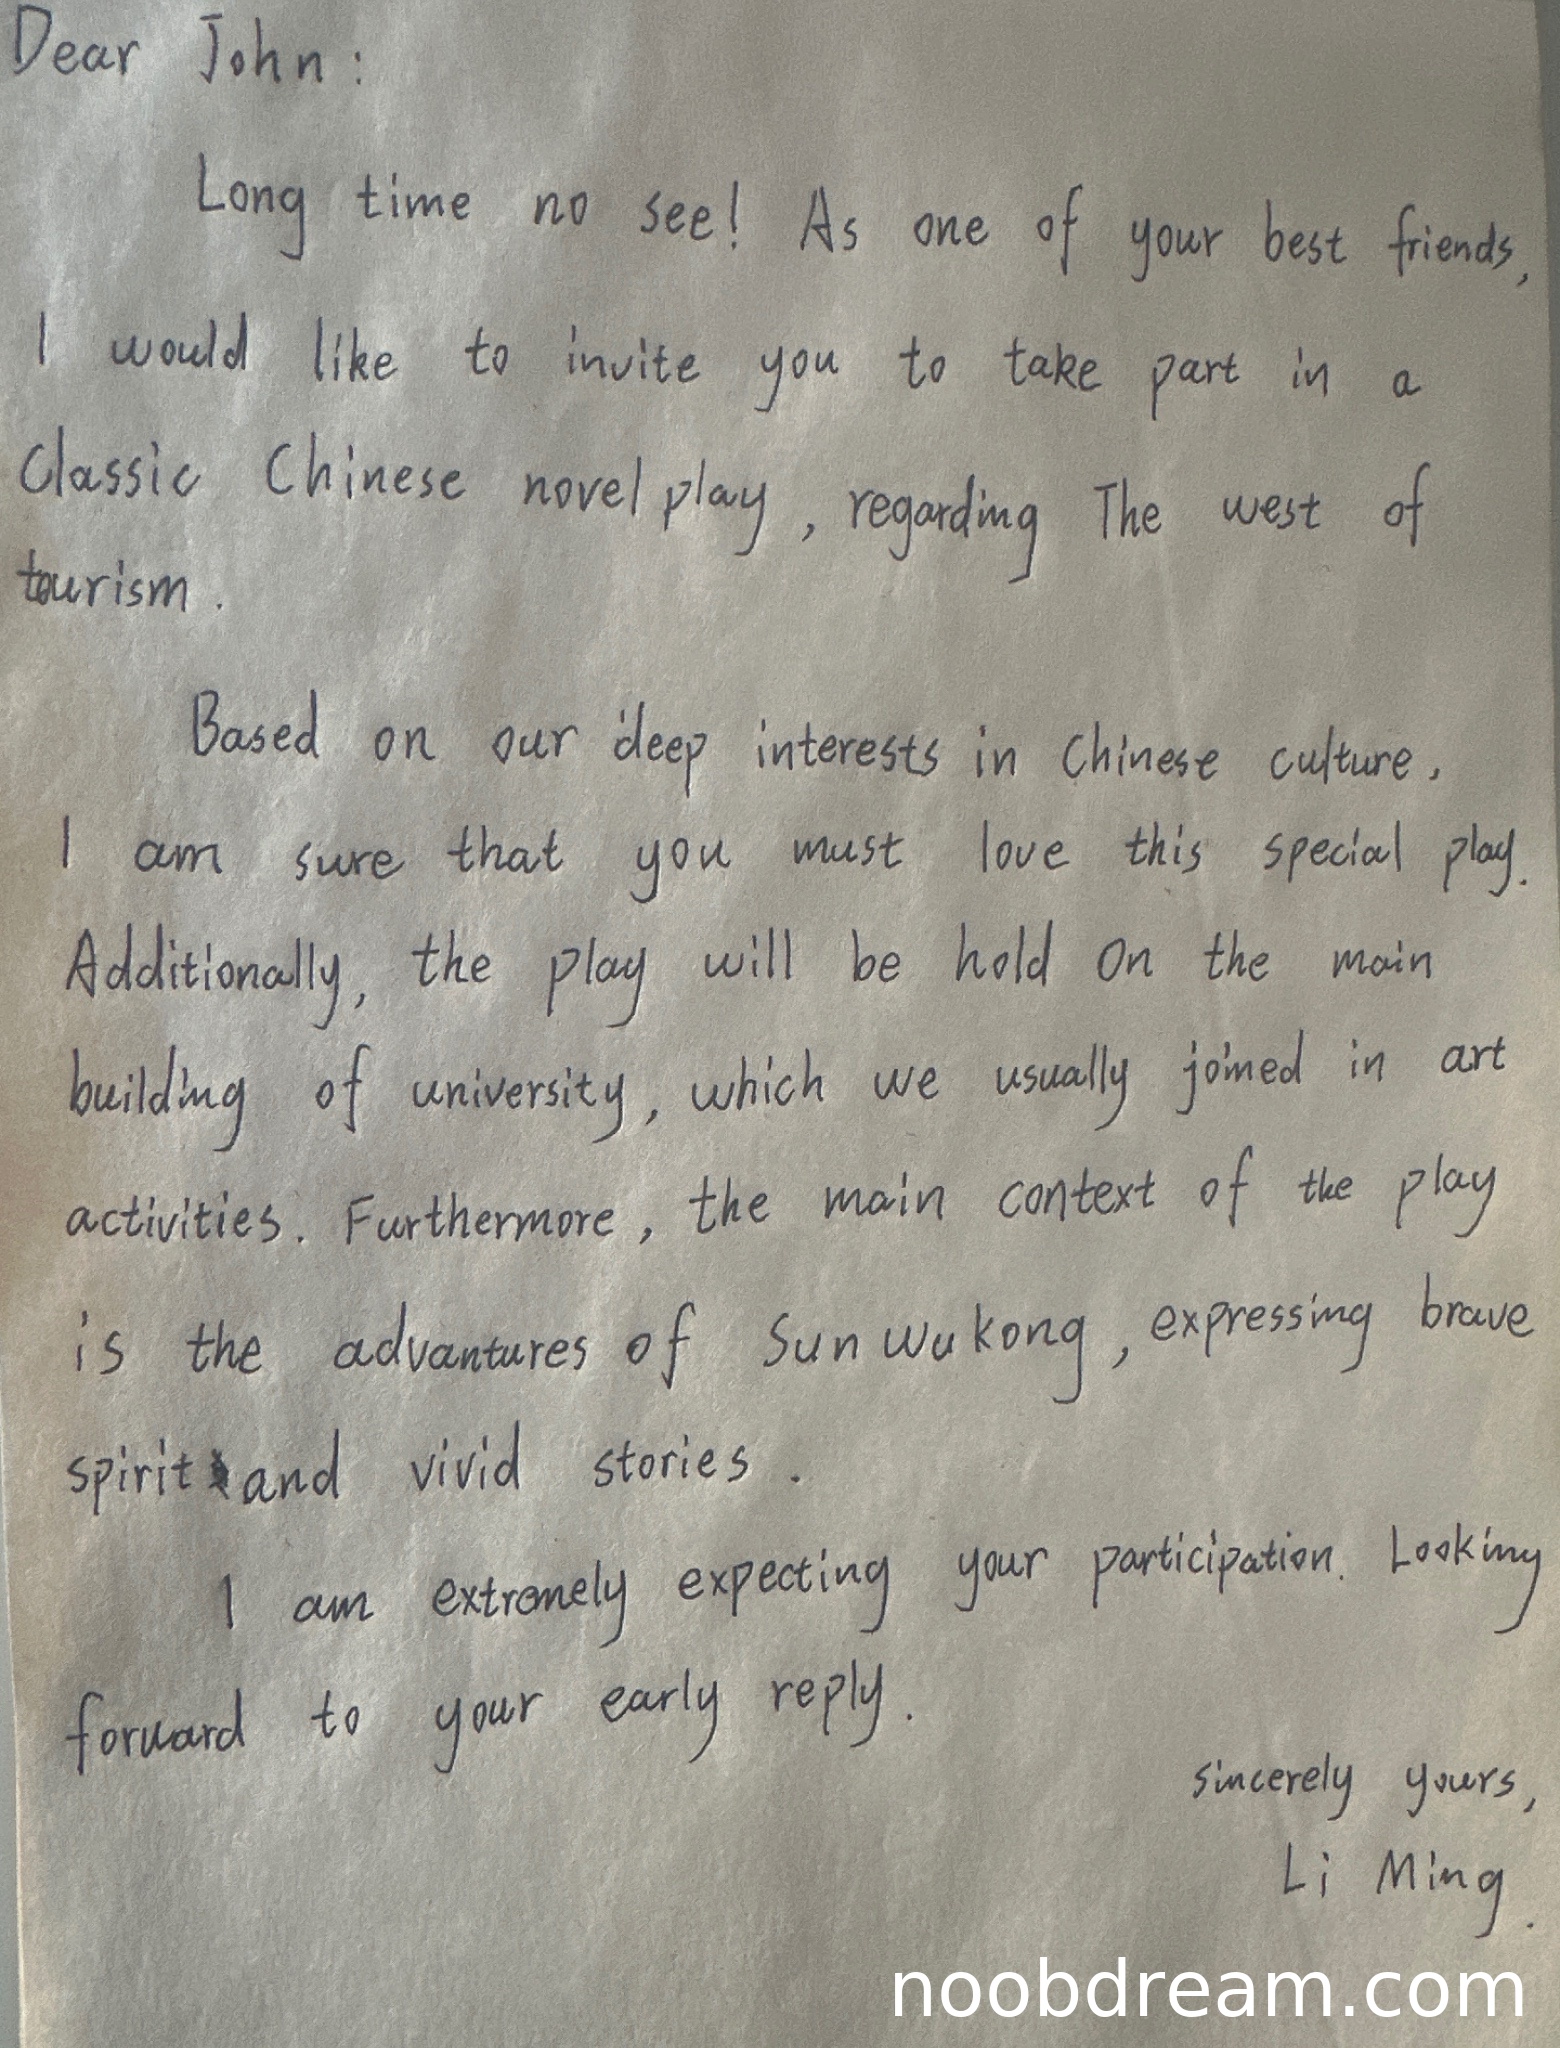 Dear John:
Long time no see! As one of your best friends,
I would like to invite you to take part in a
Classic Chinese novel play, regarding The west of
tourism.
Based on our deep interests in Chinese culture,
I am sure that you must love this special play.
Additionally, the play will be hold On the main
building of university, which we usually joined in art
activities. Furthermore, the main context of the play
is the advantures of Sun wukong, expressing brave
spirit and vivid stories.
I am extremely expecting your participation. Looking
forward to your early reply.
sincerely yours,
Li Ming.
noobdream.com